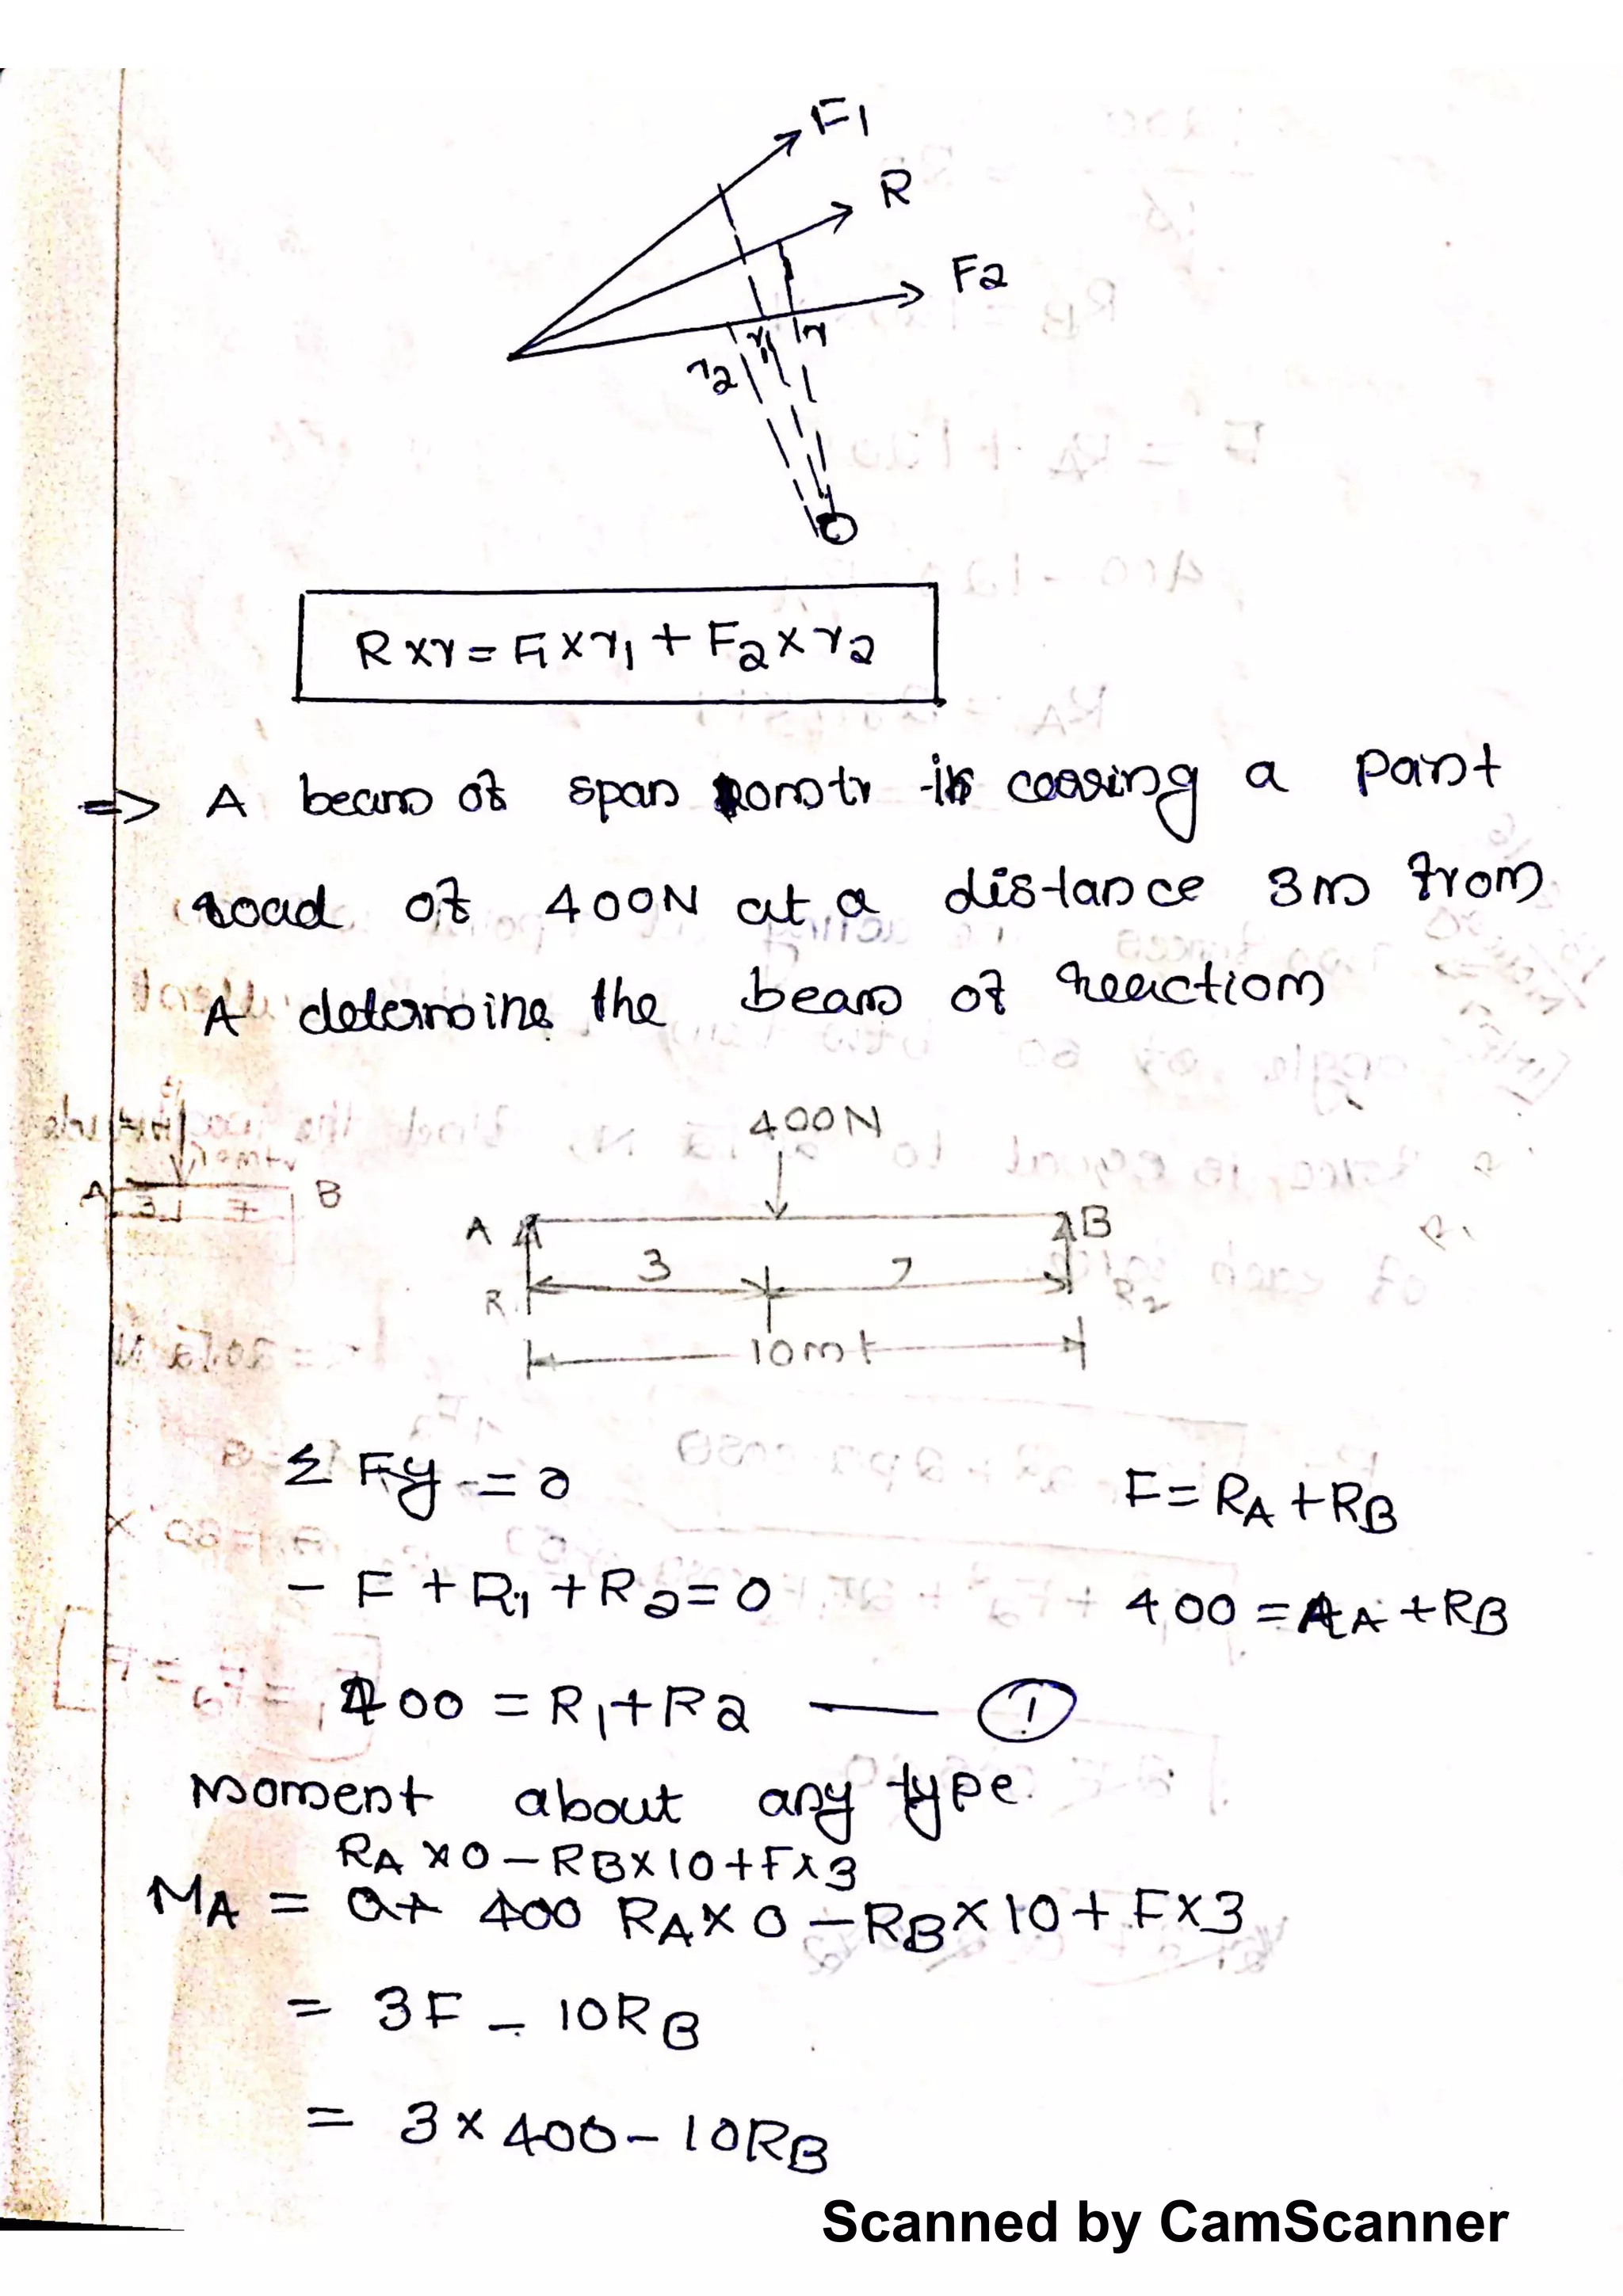 F1
R
F2
r2 r1 r
O
R×r = F1×r1 + F2×r2
=> A beam of span 10mtr is carring a point
load of 400N at a distance 3m from
A determine the beam of reaction
400N
A B
3 7
R1 R2
10mt
A B
Σ Fy = 0 F = RA + RB
- F + R1 + R2 = 0 400 = RA + RB
400 = R1 + R2 — 1
Moment about any type
RA×0 - RB×10 + F×3
MA = 0+ 400 RA×0 - RB×10 + F×3
= 3F - 10RB
= 3×400 - 10RB
Scanned by CamScanner